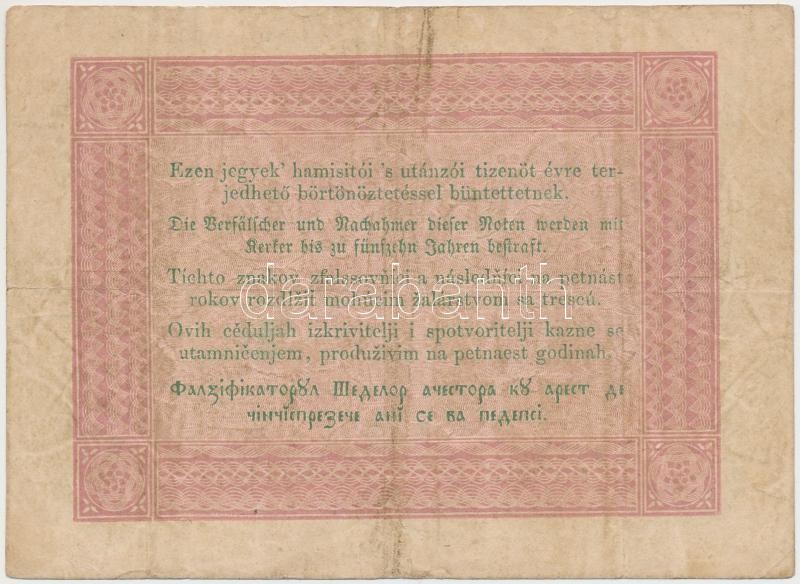 Ezen jegyek' hamisitói 's utánzói tizenöt évre ter-
jedhető börtönöztetéssel büntettetnek.
Die Verfälscher und Nachahmer dieser Noten werden mit
Kerker bis zu fünfzehn Jahren bestraft.
Tíchto znakov zfalssovňíci a následňíci na petnást
rokov rozdlžit mohúcím žalárstvom sa trescú.
darabanth
Ovih cěduljah izkrivitelji i spotvoritelji kazne se
utamničenjem, produživim na petnaest godinah.
Фалзіфікаторꙋл Шеделор ачестора кꙋ арест де
чінчіспрезече ані се ва педепсі.